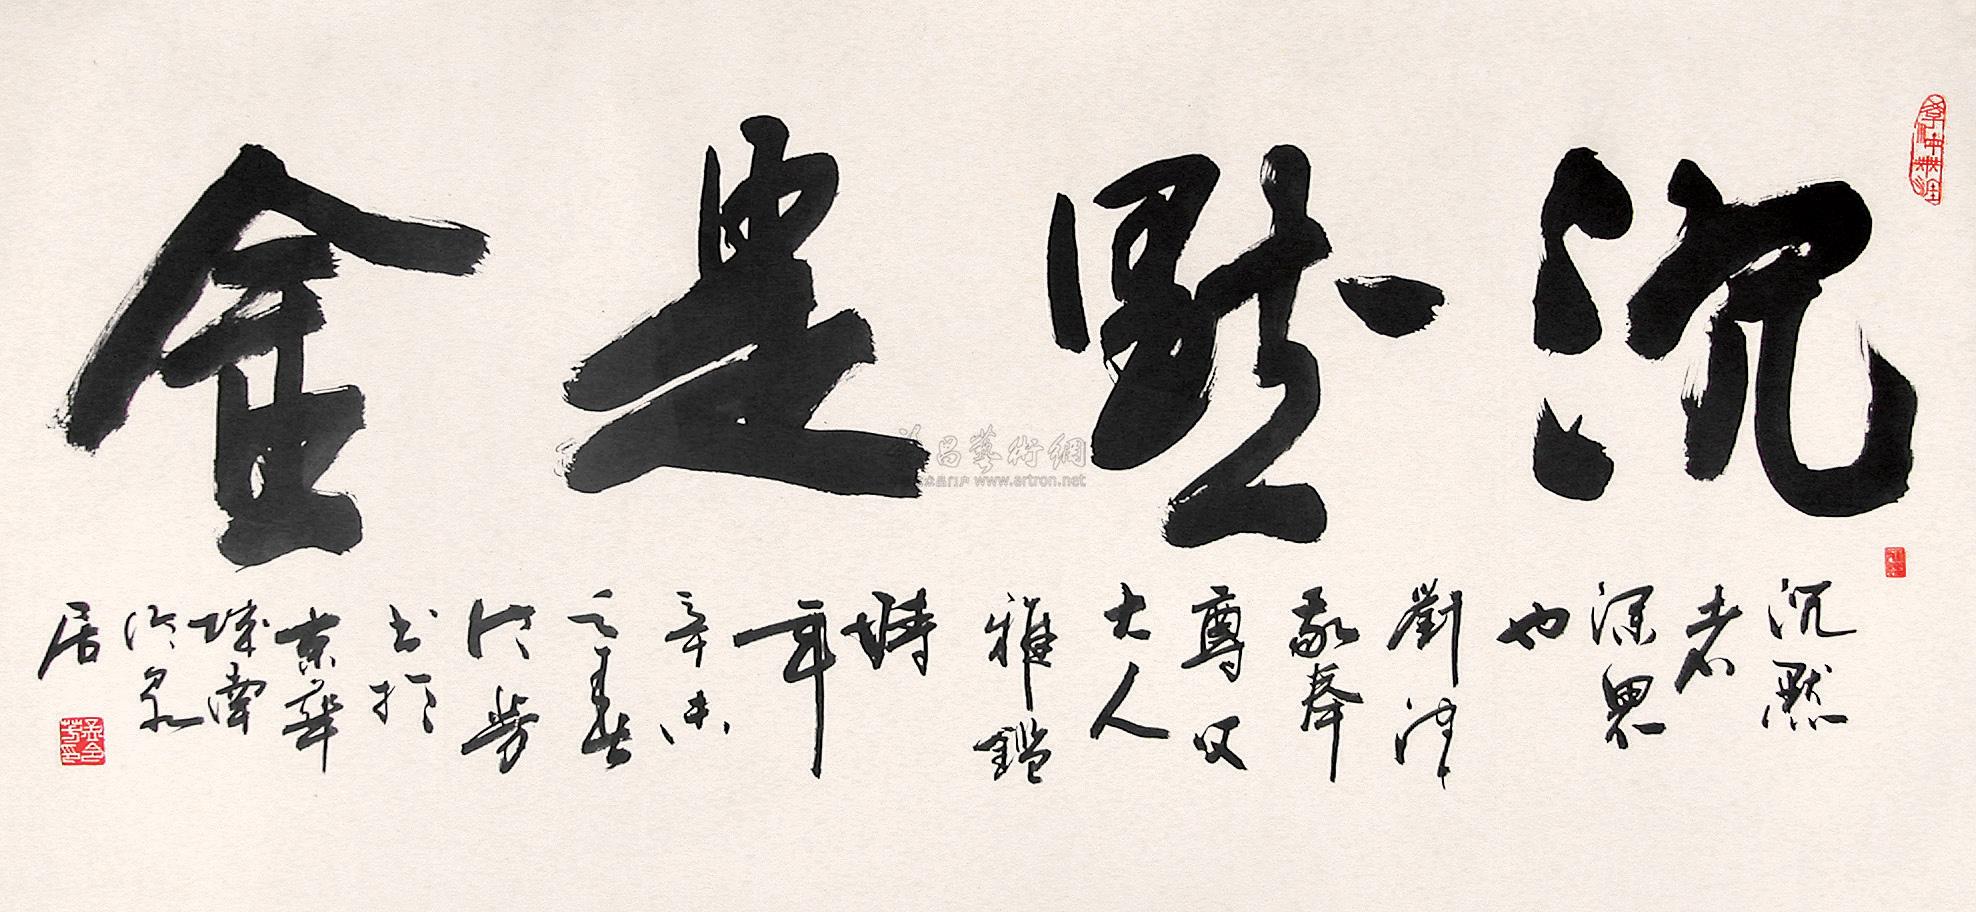 沉默是金
沉默
者
深思
也
劉津
敬奉
尊父
大人
雅鑑
時
年
辛未
之春
於
書於
京華
城南
冷泉
居
昌藝術網
www.artron.net